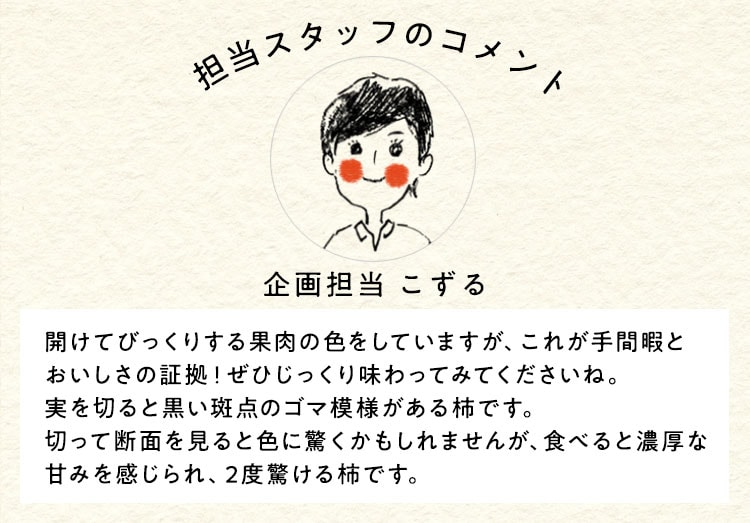 担当スタッフのコメント
企画担当 こずる
開けてびっくりする果肉の色をしていますが、これが手間暇と
おいしさの証拠！ぜひじっくり味わってみてくださいね。
実を切ると黒い斑点のゴマ模様がある柿です。
切って断面を見ると色に驚くかもしれませんが、食べると濃厚な
甘みを感じられ、2度驚ける柿です。